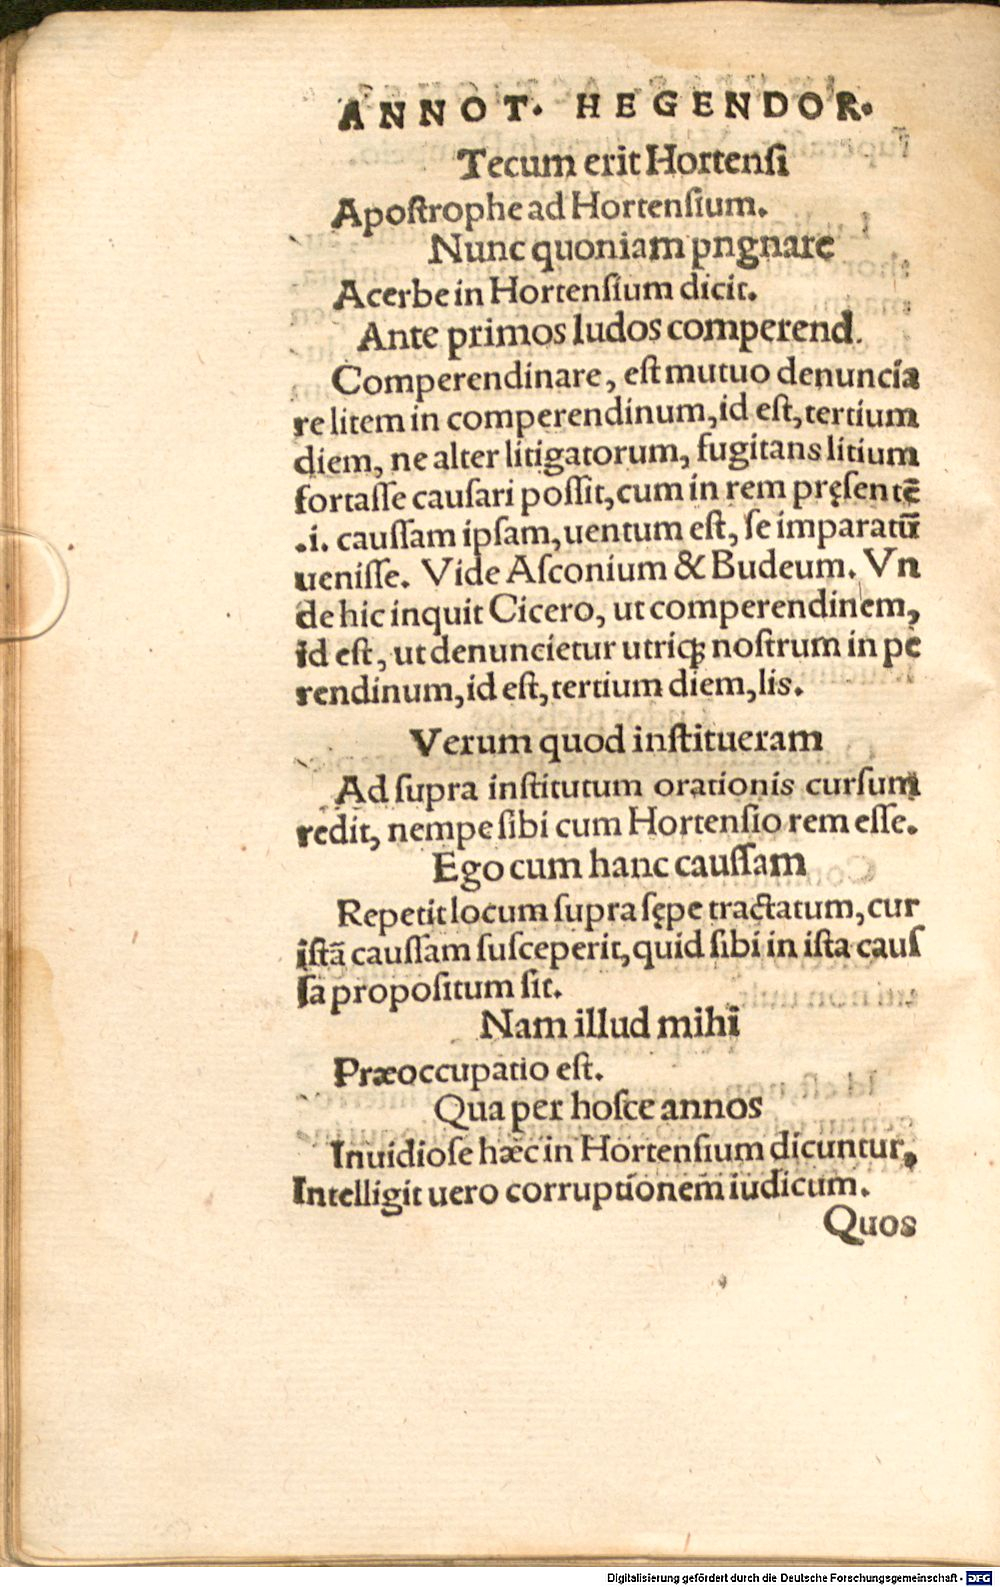 ANNOT. HEGENDOR.
Tecum erit Hortenſi
Apoſtrophe ad Hortenſium.
Nunc quoniam pngnare
Acerbe in Hortenſium dicit.
Ante primos ludos comperend.
Comperendinare, eſt mutuo denuncia
re litem in comperendinum, id eſt, tertium
diem, ne alter litigatorum, fugitans litium
fortaſſe cauſari poſſit, cum in rem pręſentē
.i. cauſſam ipſam, uentum eſt, ſe imparatū
ueniſſe. Vide Aſconium & Budeum. Vn
de hic inquit Cicero, ut comperendinem,
id eſt, ut denuncietur utriqꝫ noſtrum in pe
rendinum, id eſt, tertium diem, lis.
Verum quod inſtitueram
Ad ſupra inſtitutum orationis curſum
redit, nempe ſibi cum Hortenſio rem eſſe.
Ego cum hanc cauſſam
Repetit locum ſupra ſępe tractatum, cur
iſtā cauſſam ſuſceperit, quid ſibi in iſta cauſ
ſa propoſitum ſit.
Nam illud mihi
Præoccupatio eſt.
Qua per hoſce annos
Inuidioſe hæc in Hortenſium dicuntur,
Intelligit uero corruptionem̄ iudicum.
Quos
Digitalisierung gefördert durch die Deutsche Forschungsgemeinschaft - DFG